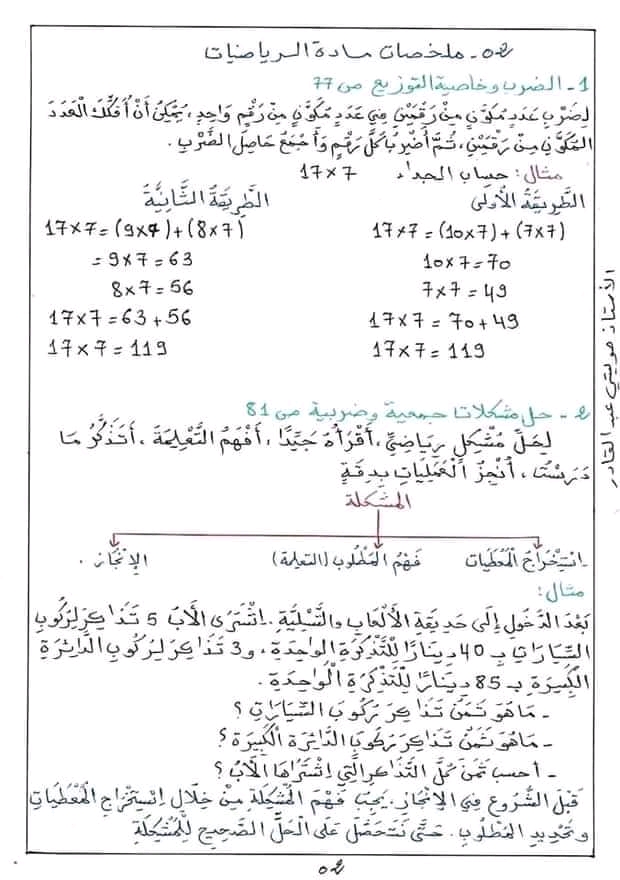 02 - ملخصات مادة الرياضيات
1 - الضرب وخاصية التوزيع ص 77
لِضَرْبِ عَدَدٍ مُكَوَّنٍ مِنْ رَقْمَيْنِ فِي عَدَدٍ مُكَوَّنٍ مِنْ رَقْمٍ وَاحِدٍ، يُمْكِنُ أَنْ أُفَكِّكَ الْعَدَدَ
المُكَوَّنِ مِنْ رَقْمَيْنِ، ثُمَّ أَضْرِبُ كُلَّ رَقْمٍ وَأَجْمَعُ حَاصِلَ الضَّرْبِ.
مثال: حساب الجداء 17×7
الطَّرِيقَةُ الأُولَى
17×7 = (10×7) + (7×7)
10×7 = 70
7×7 = 49
17×7 = 70 + 49
17×7 = 119
الطَّرِيقَةُ الثَّانِيَّةُ
17×7 = (9×7) + (8×7)
= 9×7 = 63
8×7 = 56
17×7 = 63 + 56
17×7 = 119
2 - حل مشكلات جمعية وضربية ص 81
لِحَلِّ مُشْكِلٍ رِيَاضِيٍّ، أَقْرَأُهُ جَيِّدًا، أَفْهَمُ التَّعْلِيمَةَ، أَتَذَكَّرُ مَا
دَرَسْتُ، أُنْجِزُ الْعَمَلِيَّاتِ بِدِقَّةٍ
المشكلة
- اسْتِخْرَاجُ الْمُعْطَيَاتِ فَهْمُ الْمَطْلُوبِ (التعلمة) الإِنْجَازُ.
مثال:
بَعْدَ الدُّخُولِ إِلَى حَدِيقَةِ الأَلْعَابِ والتَّسْلِيَّةِ. اِشْتَرَى الأَبُ 5 تَذَاكِرَ لِرُكُوبِ
السَّيَّارَاتِ بِـ 40 دِينَارًا لِلتَّذْكِرَةِ الوَاحِدَةِ، و3 تَذَاكِرَ لِرُكُوبِ الدَّائِرَةِ
الْكَبِيرَةِ بـ 85 دِينَارًا لِلتَّذْكِرَةِ الْوَاحِدَةِ.
- مَا هُوَ ثَمَنُ تَذَاكِرَ رُكُوبِ السَّيَّارَاتِ ؟
- مَا هُوَ ثَمَنُ تَذَاكِرَ رُكُوبِ الدَّائِرَةِ الْكَبِيرَةِ ؟
- أحسب ثَمَنَ كُلِّ التَّذَاكِرِ الَّتِي اِشْتَرَاهَا الأَبُ ؟
قَبْلَ الشُّرُوعِ فِي الإِنْجَازِ. يَجِبُ فَهْمَ الْمُشْكِلَةِ مِنْ خِلَالِ اِسْتِخْرَاجِ الْمُعْطَيَاتِ
وتَحْدِيدِ الْمَطْلُوبِ. حَتَّى نَتَحَصَّلَ عَلَى الْحَلِّ الصَّحِيحِ لِلْمُشْكِلَةِ
02
الأستاذ حويتي عبد القادر